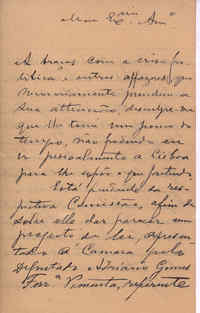 Meu Exmo. Amo
A braços com a crise po-
litica e outros affazeres que
necessariamente prendem a
sua attenção, desculpe-me
que lhe tome um pouco de
tempo, não podendo eu
ir pessoalmente a Lisboa
para lhe expôr o que pretendo.
Está pendente da res-
pectiva Commissão, afim de
sobre elle dar parecer um
projecto de lei, apresen-
tado á Camara pelo
Deputado Adriano Gomes
Ferra Pimenta, referente